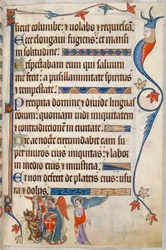 sicut columbe: et uolabo et requiescã.
Ecce elongaui fugiens: et mansi
in solitudine.
Expectabam eum qui saluum
me fecit: a pusillanimitate spiritus
et tempestate.
Precipita domine et diuide linguas
eorum: quoniam uidi iniquitatem
et contradictionem in ciuitate.
Die ac nocte circumdabit eam su
per muros eius iniquitas: et labor
in medio eius et iniusticia.
Et non defecit de plateis eius: usu
ra et dolus.